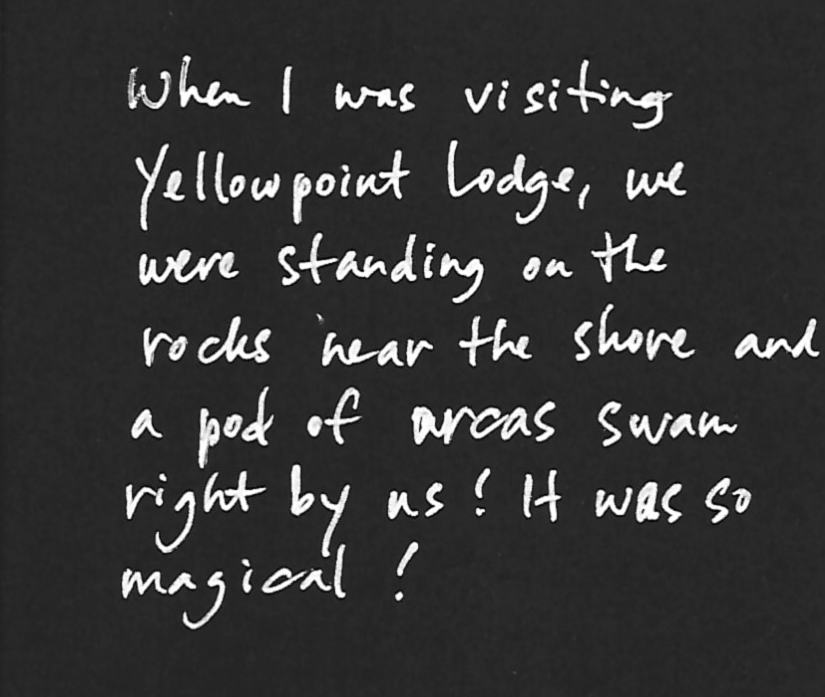 When I was visiting
Yellowpoint Lodge, we
were standing on the
rocks near the shore and
a pod of orcas swam
right by us! It was so
magical!